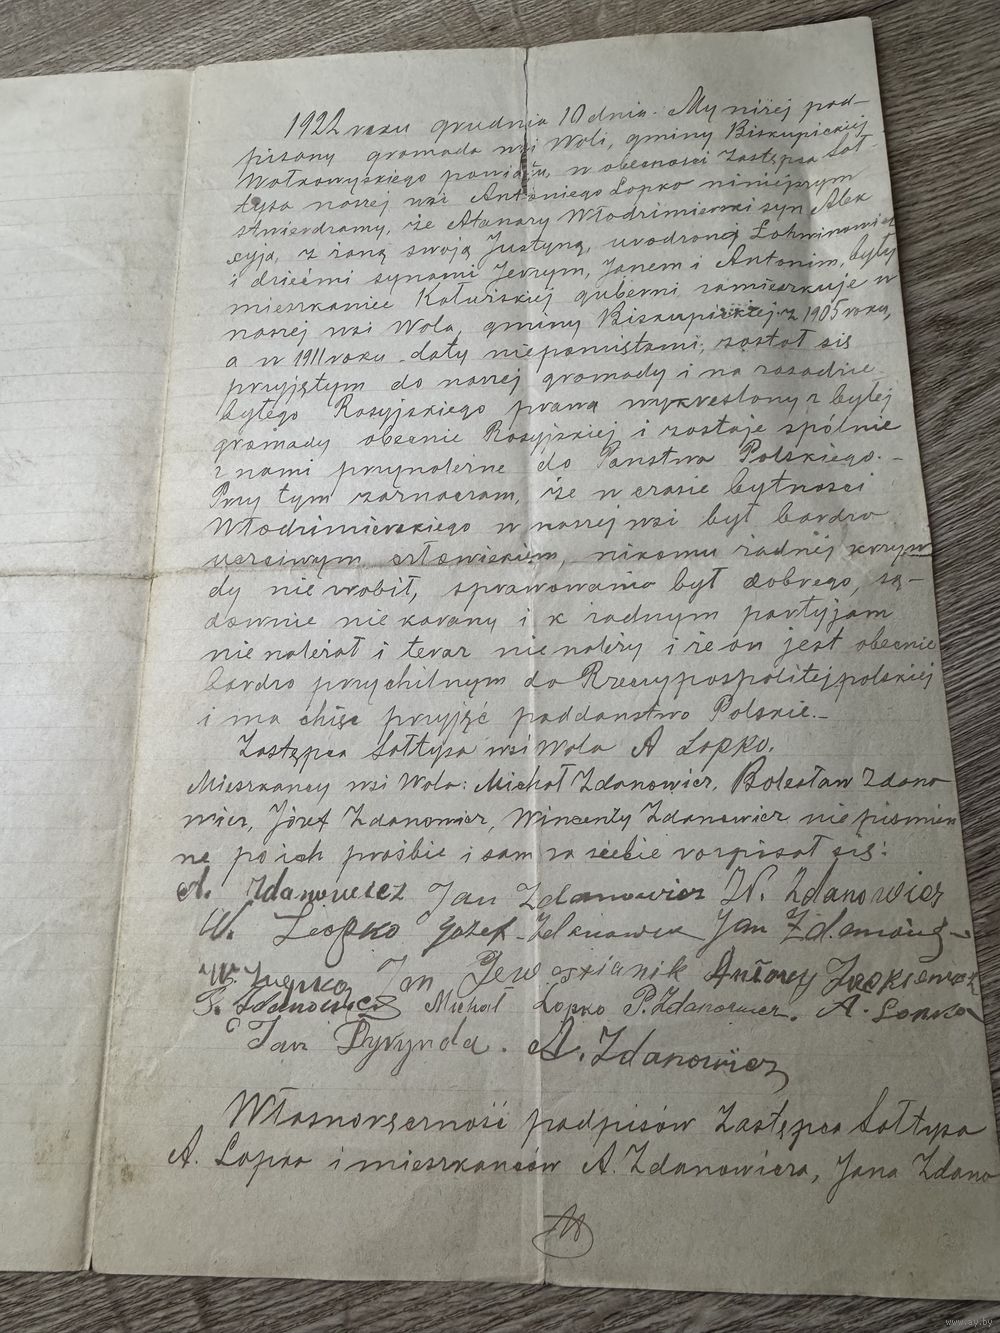 1922 roku grudnia 10 dnia. My niżej pod-
pisany gromada wsi Woli, gminy Biskupickiej
Wołkowyskiego powiatu, w obecności Zastępca Soł-
tysa naszej wsi Antoniego Łopko niniejszym
stwierdzamy, że Atanazy Włodzimierski syn Alek
syja, z żoną swoją Justyną, urodzoną Łohwinowicz
i dziećmi synami Jerzym, Janem i Antonim, były
mieszkaniec Kałuskiej guberni zamieszkuje w
naszej wsi Wola, gminy Biskupickiej z 1905 roku,
a w 1911 roku daty niepamiętami, został się
przyjętym do naszej gromady i na zasadzie
byłego Rosyjskiego prawa wykreślony z byłej
gromady obecnie Rosyjskiej i zostaje spólnie
z nami przynależne do Państwa Polskiego.-
Przy tym zaznaczam, że w czasie bytności
Włodzimierskiego w naszej wsi był bardzo
uczciwym człowiekiem, nikomu żadnej krzyw
dy nie robił, sprawowania był dobrego, są-
downie nie karany i k żadnym partyjam
nie należał i teraz nie należy i że on jest obecnie
bardzo przychilnym do Rzeczypospolitej polskiej
i ma chięc przyjęć poddanstwo Polskie.-
Zastępca Sołtysa wsi Wola A Łopko.
Mieszkancy wsi Wola: Michał Zdanowicz, Bolesław Zdano
wicz, Józef Zdanowicz, Wincenty Zdanowicz niepismien
ne po ich prośbie i sam za siebie rozpisał się:
A. Zdanowicz Jan Zdanowicz W. Zdanowicz
W. Łopko Józef Zdanowicz Jan Zdanowicz
W. Łopko Jan Antony
Zdanowicz Michał Łopko P. Zdanowicz. A. Łopko
Jan Dyrynda. A. Zdanowicz
Własnoręczność podpisów Zastępca Sołtysa
A. Łopko i mieszkańców A. Zdanowicza, Jana Zdano
www.ay.by